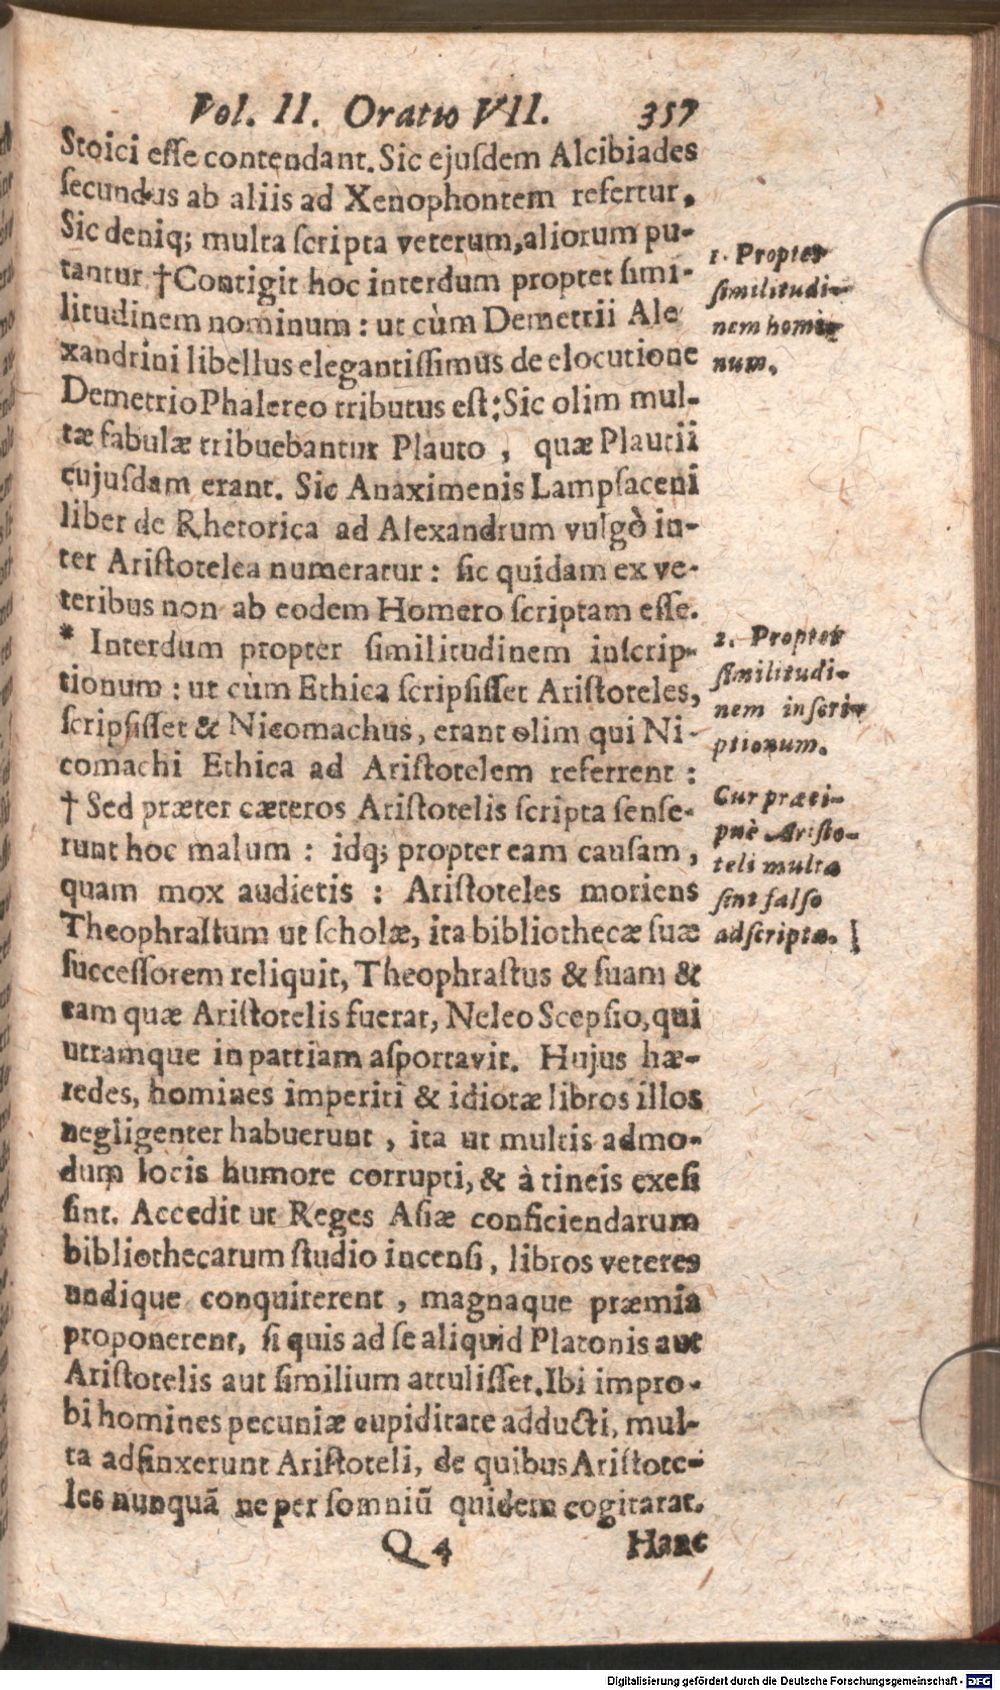 Vol. II. Oratio VII. 357
Stoici eſſe contendant. Sic ejuſdem Alcibiades
ſecundus ab aliis ad Xenophontem refertur.
Sic deniq; multa ſcripta veterum, aliorum pu-
tantur †Contigit hoc interdum propter ſimi-
litudinem nominum: ut cùm Demetrii Ale
xandrini libellus elegantiſſimus de elocutione
Demetrio Phalereo tributus eſt: Sic olim mul-
tæ fabulæ tribuebantur Plauto, quæ Plautii
cujuſdam erant. Sic Anaximenis Lampſaceni
liber de Rhetorica ad Alexandrum vulgò in-
ter Ariſtotelea numeratur: ſic quidam ex ve-
teribus non ab eodem Homero ſcriptam eſſe.
* Interdum propter ſimilitudinem inſcrip-
tionum: ut cùm Ethica ſcripſiſſet Ariſtoteles,
ſcripſiſſet & Nicomachus, erant olim qui Ni-
comachi Ethica ad Ariſtotelem referrent:
† Sed præter cæteros Ariſtotelis ſcripta ſenſe-
runt hoc malum: idq; propter eam cauſam,
quam mox audietis: Ariſtoteles moriens
Theophraſtum ut ſcholæ, ita bibliothecæ ſuæ
ſucceſſorem reliquit, Theophraſtus & ſuam &
eam quæ Ariſtotelis fuerat, Neleo Scepſio, qui
utramque in patriam aſportavit. Hujus hæ-
redes, homines imperiti & idiotæ libros illos
negligenter habuerunt, ita ut multis admo-
dum locis humore corrupti, & à tineis exeſi
ſint. Accedit ut Reges Aſiæ conficiendarum
bibliothecarum ſtudio incenſi, libros veteres
undique conquirerent, magnaque præmia
proponerent, ſi quis ad ſe aliquid Platonis aut
Ariſtotelis aut ſimilium attuliſſet. Ibi impro-
bi homines pecuniæ cupiditate adducti, mul-
ta adfinxerunt Ariſtoteli, de quibus Ariſtote-
les nunquã ne per ſomniũ quidem cogitarat.
Q 4 Hanc
1. Propter
ſimilitudi-
nem homi-
num.
2. Propter
ſimilitudi-
nem inſcri-
ptionum.
Cur præci-
puè Ariſto-
teli multa
ſint falſo
adſcripta.
Digitalisierung gefördert durch die Deutsche Forschungsgemeinschaft - DFG